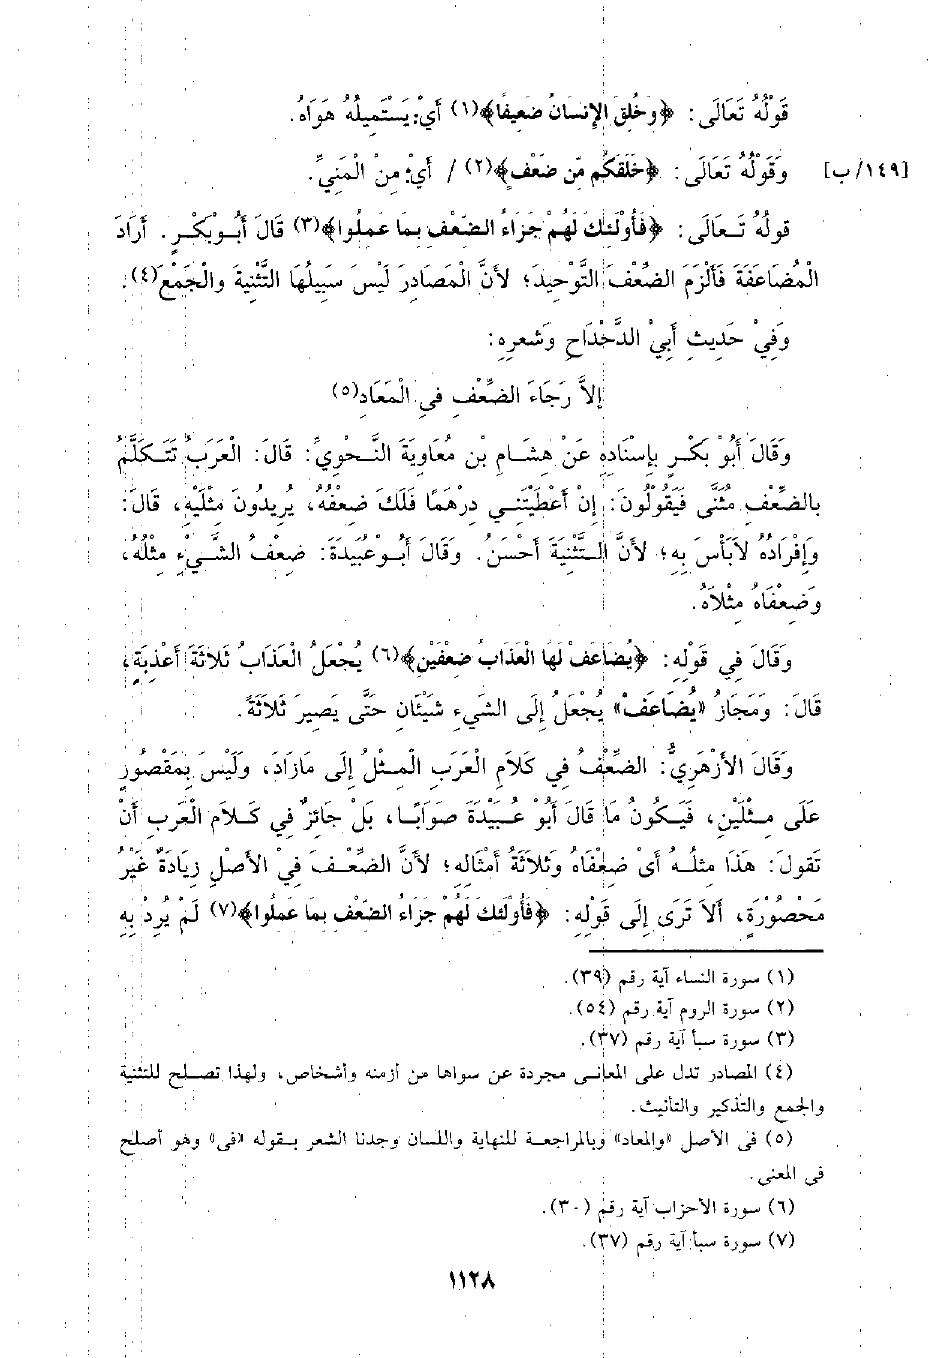 قَولُهُ تَعَالَى: ﴿وَخُلِقَ الإِنسَانُ ضَعِيفًا﴾(١) أَيْ: يَسْتَمِيلُهُ هَوَاهُ.
[١٤٩/ب] وَقَوْلُهُ تَعَالَى: ﴿خَلَقَكُم مِّن ضَعْفٍ﴾(٢) / أَيْ: مِنْ الْمَنِيِّ.
قولُهُ تَعَالَى: ﴿فَأُوْلَئِكَ لَهُمْ جَزَاءُ الضِّعْفِ بِمَا عَمِلُوا﴾(٣) قَالَ أَبُوبَكْرٍ. أَرَادَ
الْمُضَاعَفَةَ فَأَلْزَمَ الضِّعْفَ التَّوْحِيدَ؛ لأَنَّ الْمَصَادِرَ لَيْسَ سَبِيلُهَا التَّثْنِيَةَ والْجَمْعَ(٤).
وَفِيْ حَدِيثِ أَبِيْ الدَّحْدَاحِ وَشعرِهِ:
إلاَّ رَجَاءَ الضِّعْفِ فِي الْمَعَادِ(٥)
وَقَالَ أَبُوْ بَكْرٍ بِإِسْنَادِهِ عَنْ هِشَامِ بْنِ مُعَاوِيَةَ النَّحْوِيِّ: قَالَ: الْعَرَبُ تَتَكَلَّمُ
بالضِّعْفِ مُثَنَّى فَيَقُولُونَ: إنْ أَعْطَيْتَنِي دِرهَمًا فَلَكَ ضِعْفُهُ، يُرِيدُونَ مثْلَيْهِ، قَالَ:
وَإِفْرَادُهُ لاَبَأْسَ بِهِ؛ لأَنَّ التَّثْنِيَةَ أَحْسَنُ. وَقَالَ أَبُوعُبَيدَةَ: ضِعْفُ الشَّيْءِ مثْلُهُ،
وَضِعْفَاهُ مثْلاَهُ.
وَقَالَ فِي قَوْلِهِ: ﴿يُضَاعَف لَهَا العَذَابُ ضِعْفَيْنِ﴾(٦) يُجْعَلُ الْعَذَابُ ثَلاَثَةَ أَعْذِبَةٍ،
قَالَ: وَمَجَازُ «يُضَاعَف» يُجْعَلُ إلَى الشَيءِ شَيْئَان حَتَّى يَصِيرَ ثَلاَثَةً.
وَقَالَ الأَزْهَرِيُّ: الضِّعْفُ فِي كَلاَمِ الْعَرَبِ الْمِثْلُ إلَى مَازَادَ، وَلَيْسَ بِمَقْصُورٍ
عَلَى مِثْلَيْنِ، فَيَكُونُ مَا قَالَ أَبُوْ عُبَيْدَةَ صَوَابًا، بَلْ جَائِزٌ فِي كَلاَمِ الْعَرَبِ أَنْ
تَقولَ: هَذَا مثلُهُ أَىْ ضِعْفَاهُ وَثَلاَثَةُ أَمْثَالِهِ؛ لأَنَّ الضِّعْفَ فِيْ الأَصْلِ زِيَادَةٌ غَيْرُ
مَحْصُوْرَةٍ، أَلاَ تَرَى إلَى قَوْلِهِ: ﴿فَأُوْلَئِكَ لَهُمْ جَزَاءُ الضِّعْفِ بِمَا عَمِلُوا﴾(٧) لَمْ يُرِدْ بِهِ
(١) سورة النساء آية رقم (٣٩).
(٢) سورة الروم آية رقم (٥٤).
(٣) سورة سبأ آية رقم (٣٧).
(٤) المصادر تدل على المعانى مجردة عن سواها من أزمنه وأشخاص، ولهذا تصلح للتثنية
والجمع والتذكير والتأنيث.
(٥) فى الأصل «والمعاد» وبالمراجعة للنهاية واللسان وجدنا الشعر بقوله «فى» وهو أصلح
فى المعنى.
(٦) سورة الأحزاب آية رقم (٣٠).
(٧) سورة سبأ آية رقم (٣٧).
١١٢٨